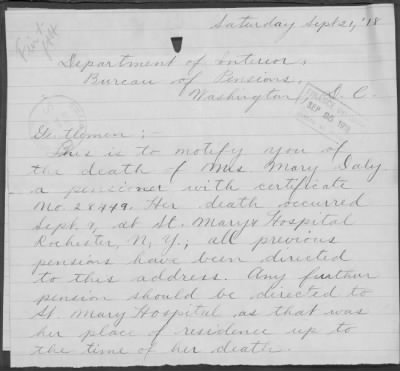 Saturday Sept 21, '18
Department of Interior,
Bureau of Pensions,
Washington, D. C.
SEP 26 1918
Gentlemen:-
This is to notify you of
the death of Mrs Mary Daly
a pensioner with certificate
No. 28449. Her death occurred
Sept. 8, at St. Marys Hospital
Rochester, N. Y.; all previous
pensions have been directed
to this address. Any further
pension should be directed to
St. Mary Hospital as that was
her place of residence up to
the time of her death.